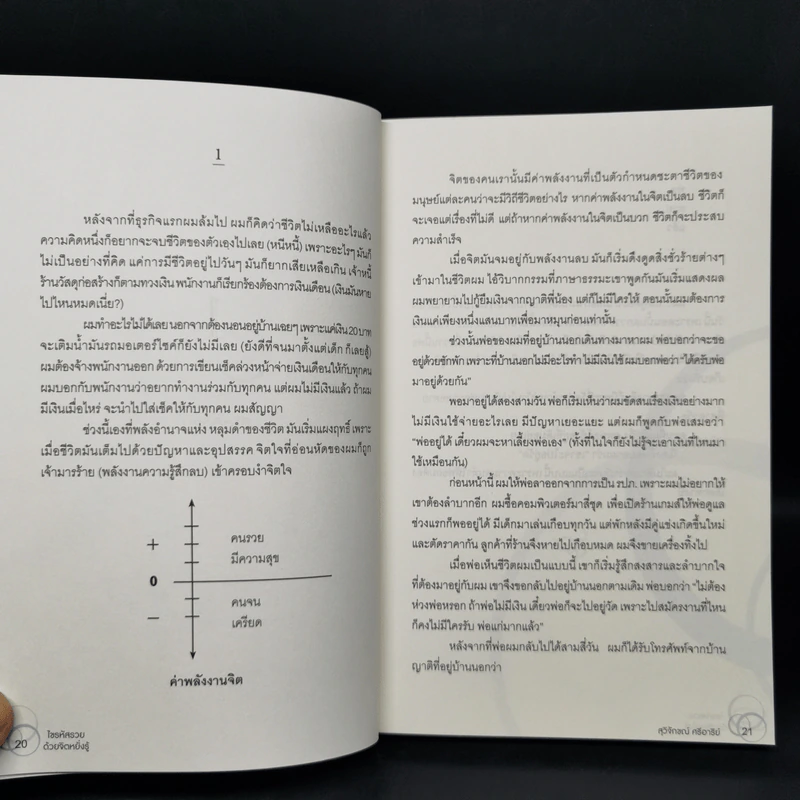 1
หลังจากที่ธุรกิจแรกผมล้มไป ผมก็คิดว่าชีวิตไม่เหลืออะไรแล้ว
ความคิดหนึ่งก็อยากจะจบชีวิตของตัวเองไปเลย (หนีหนี้) เพราะอะไรๆ มันก็
ไม่เป็นอย่างที่คิด แค่การมีชีวิตอยู่ไปวันๆ มันก็ยากเสียเหลือเกิน เจ้าหนี้
ร้านวัสดุก่อสร้างก็ตามทวงเงิน พนักงานก็เรียกร้องต้องการเงินเดือน (เงินมันหาย
ไปไหนหมดเนี่ย?)
ผมทำอะไรไม่ได้เลย นอกจากต้องนอนอยู่บ้านเฉยๆ เพราะแค่เงิน 20 บาท
จะเติมน้ำมันรถมอเตอร์ไซค์ก็ยังไม่มีเลย (ยังดีที่จนมาตั้งแต่เด็ก ก็เลยสู้)
ผมต้องจ้างพนักงานออก ด้วยการเขียนเช็คล่วงหน้าจ่ายเงินเดือนให้กับทุกคน
ผมบอกกับพนักงานว่าอยากทำงานร่วมกับทุกคน แต่ผมไม่มีเงินแล้ว ถ้าผม
มีเงินเมื่อไหร่ จะนำไปใส่เช็คให้กับทุกคน ผมสัญญา
ช่วงนี้เองที่พลังอำนาจแห่ง หลุมดำของชีวิต มันเริ่มแผงฤทธิ์ เพราะ
เมื่อชีวิตมันเต็มไปด้วยปัญหาและอุปสรรค จิตใจที่อ่อนหัดของผมก็ถูก
เจ้ามารร้าย (พลังงานความรู้สึกลบ) เข้าครอบงำจิตใจ
+
คนรวย
มีความสุข
0
คนจน
–
เครียด
ค่าพลังงานจิต
20
ไขรหัสรวย
ด้วยจิตหยั่งรู้
จิตของคนเรานั้นมีค่าพลังงานที่เป็นตัวกำหนดชะตาชีวิตของ
มนุษย์แต่ละคนว่าจะมีวิถีชีวิตอย่างไร หากค่าพลังงานในจิตเป็นลบ ชีวิตก็
จะเจอแต่เรื่องที่ไม่ดี แต่ถ้าหากค่าพลังงานในจิตเป็นบวก ชีวิตก็จะประสบ
ความสำเร็จ
เมื่อจิตมันจมอยู่กับพลังงานลบ มันก็เริ่มดึงดูดสิ่งชั่วร้ายต่างๆ
เข้ามาในชีวิตผม ไอ้วิบากกรรมที่ภาษาธรรมะเขาพูดกันมันเริ่มแสดงผล
ผมพยายามไปกู้ยืมเงินจากญาติพี่น้อง แต่ก็ไม่มีใครให้ ตอนนั้นผมต้องการ
เงินแค่เพียงหนึ่งแสนบาทเพื่อมาหมุนก่อนเท่านั้น
ช่วงนั้นพ่อของผมที่อยู่บ้านนอกเดินทางมาหาผม พ่อบอกว่าจะขอ
อยู่ด้วยซักพัก เพราะที่บ้านนอก ไม่มีอะไรทำ ไม่มีเงินใช้ ผมบอกพ่อว่า "ได้ครับพ่อ
มาอยู่ด้วยกัน"
พอมาอยู่ได้สองสามวัน พ่อก็เริ่มเห็นว่าผมขัดสนเรื่องเงินอย่างมาก
ไม่มีเงินใช้จ่ายอะไรเลย มีปัญหาเยอะแยะ แต่ผมก็พูดกับพ่อเสมอว่า
"พ่ออยู่ได้ เดี๋ยวผมจะหาเลี้ยงพ่อเอง" (ทั้งที่ในใจก็ยังไม่รู้จะเอาเงินที่ไหนมา
ใช้เหมือนกัน)
ก่อนหน้านี้ ผมให้พ่อลาออกจากการเป็น รปภ. เพราะผมไม่อยากให้
เขาต้องลำบากอีก ผมซื้อคอมพิวเตอร์มาสี่ชุด เพื่อเปิดร้านเกมส์ให้พ่อดูแล
ช่วงแรกก็พออยู่ได้ มีเด็กมาเล่นเกือบทุกวัน แต่พักหลังมีคู่แข่งเกิดขึ้นใหม่
และตัดราคากัน ลูกค้าที่ร้านจึงหายไปเกือบหมด ผมจึงขายเครื่องทิ้งไป
เมื่อพ่อเห็นชีวิตผมเป็นแบบนี้ เขาก็เริ่มรู้สึกสงสารและลำบากใจ
ที่ต้องมาอยู่กับผม เขาจึงขอกลับไปอยู่บ้านนอกตามเดิม พ่อบอกว่า "ไม่ต้อง
ห่วงพ่อหรอก ถ้าพ่อไม่มีเงิน เดี๋ยวพ่อก็จะไปอยู่วัด เพราะไปสมัครงานที่ไหน
ก็คงไม่มีใครรับ พ่อแก่มากแล้ว"
หลังจากที่พ่อผมกลับไปได้สามสี่วัน ผมก็ได้รับโทรศัพท์จากบ้าน
ญาติที่อยู่บ้านนอกว่า
สุวิจักขณ์ ศรีอารีย์
21